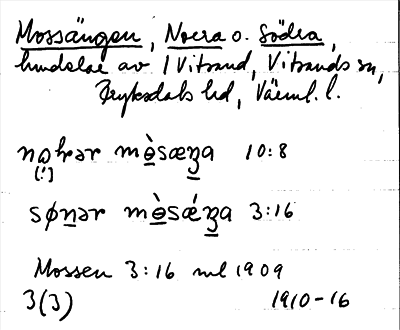 Mossängen, Norra o. Södra,
lindelar av 1 Vitsand, Vitsands sn,
Fryksdals hd, Värml. l.
nɷhər mòsæŋa 10:8
[!]
sønər mòsǽŋa 3:16
Mossen 3:16 ml 1909
3(3) 1910-16